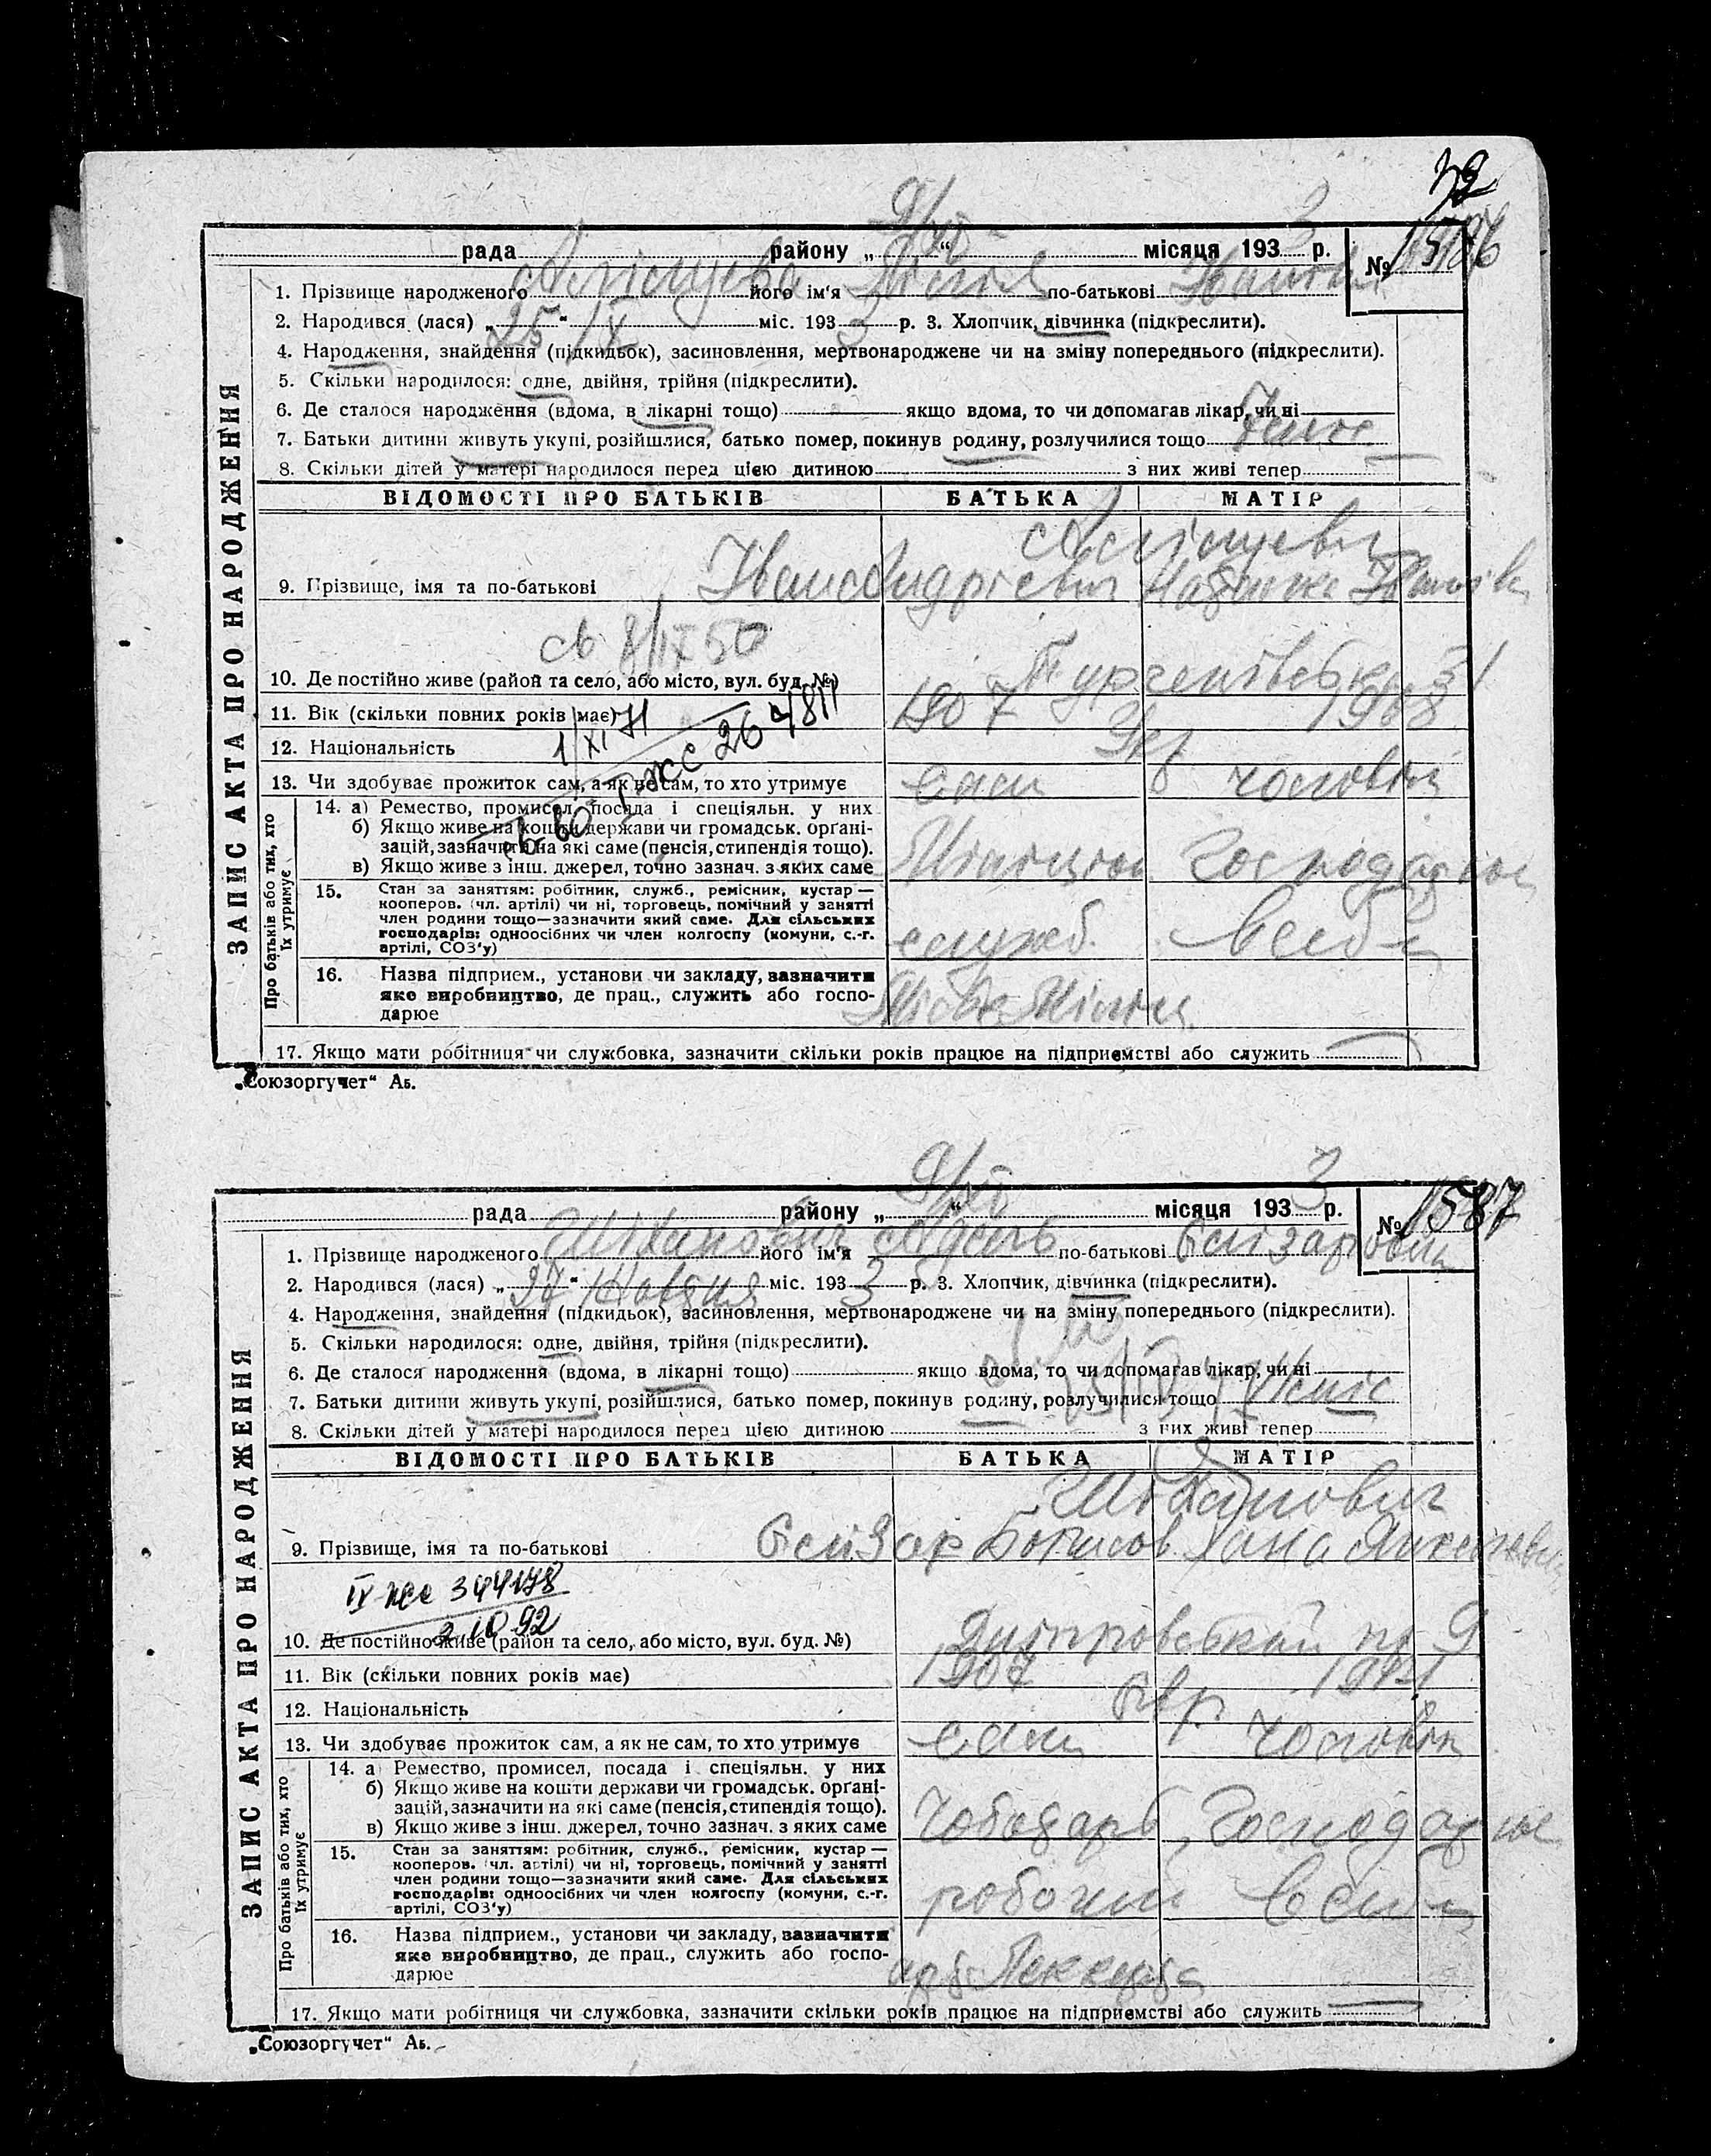 32
9/XI 3
рада району „ “ місяця 193 р. № 1586
1. Прізвище народженого його ім'я Лілія по-батькові Іванівн
2. Народився (лася) „ 25 “ IX міс. 193 3 р. 3. Хлопчик, дівчинка (підкреслити).
4. Народження, знайдення (підкидьок), засиновлення, мертвонароджене чи на зміну попереднього (підкреслити).
5. Скільки народилося: одне, двійня, трійня (підкреслити).
6. Де сталося народження (вдома, в лікарні тощо) якщо вдома, то чи допомагав лікар, чи ні
7. Батьки дитини живуть укупі, розійшлися, батько помер, покинув родину, розлучилися тощо
8. Скільки дітей у матері народилося перед цією дитиною з них живі тепер
ВІДОМОСТІ ПРО БАТЬКІВ БАТЬКА МАТІР
9. Прізвище, імя та по-батькові Іван Андрієвич Іванівн
св 8/IX 50
10. Де постійно живе (район та село, або місто, вул. буд. №) Тургенівська 31
11. Вік (скільки повних років має) 1907 1908
1/XI 71
12. Національність Укр
13. Чи здобуває прожиток сам, а як не сам, то хто утримує сам чоловік
14. а) Ремество, промисел, посада і спеціяльн. у них
б) Якщо живе на кошти держави чи громадськ. орґані-
зацій, зазначити на які саме (пенсія, стипендія тощо).
в) Якщо живе з інш. джерел, точно зазнач. з яких саме Міліціон Господарює
15. Стан за заняттям: робітник, служб., ремісник, кустар —
кооперов. (чл. артілі) чи ні, торговець, помічний у занятті
член родини тощо—зазначити який саме. Для сільських
господарів: одноосібних чи член колгоспу (комуни, с.-г.
артілі, СОЗ'у) служб. в себе
16. Назва підприєм., установи чи закладу, зазначити
яке виробництво, де прац., служить або госпо-
дарює
17. Якщо мати робітниця чи службовка, зазначити скільки років працює на підприємстві або служить
ЗАПИС АКТА ПРО НАРОДЖЕННЯ
Про батьків або тих, хто
їх утримує
„Союзоргучет“ Аб.
9/XI 3
рада району „ “ місяця 193 р. № 1587
1. Прізвище народженого Шіханович його ім'я Адель по-батькові Єлізаровн
2. Народився (лася) „ 27 “ Жовтня міс. 193 3 р. 3. Хлопчик, дівчинка (підкреслити).
4. Народження, знайдення (підкидьок), засиновлення, мертвонароджене чи на зміну попереднього (підкреслити).
5. Скільки народилося: одне, двійня, трійня (підкреслити).
6. Де сталося народження (вдома, в лікарні тощо) якщо вдома, то чи допомагав лікар, чи ні
7. Батьки дитини живуть укупі, розійшлися, батько помер, покинув родину, розлучилися тощо
8. Скільки дітей у матері народилося перед цією дитиною з них живі тепер
ВІДОМОСТІ ПРО БАТЬКІВ БАТЬКА МАТІР
Шіханович
9. Прізвище, імя та по-батькові Єлізар Борисов Хана
IV жс 344178
2 10 92
10. Де постійно живе (район та село, або місто, вул. буд. №) Дніпровський пр 9
11. Вік (скільки повних років має) 1907
12. Національність Євр.
13. Чи здобуває прожиток сам, а як не сам, то хто утримує сам чоловік
14. а) Ремество, промисел, посада і спеціяльн. у них
б) Якщо живе на кошти держави чи громадськ. орґані-
зацій, зазначити на які саме (пенсія, стипендія тощо).
в) Якщо живе з інш. джерел, точно зазнач. з яких саме Чоботарь Господарює
15. Стан за заняттям: робітник, служб., ремісник, кустар —
кооперов. (чл. артілі) чи ні, торговець, помічний у занятті
член родини тощо—зазначити який саме. Для сільських
господарів: одноосібних чи член колгоспу (комуни, с.-г.
артілі, СОЗ'у) робочий в себе
16. Назва підприєм., установи чи закладу, зазначити
яке виробництво, де прац., служить або госпо-
дарює
17. Якщо мати робітниця чи службовка, зазначити скільки років працює на підприємстві або служить
ЗАПИС АКТА ПРО НАРОДЖЕННЯ
Про батьків або тих, хто
їх утримує
„Союзоргучет“ Аб.